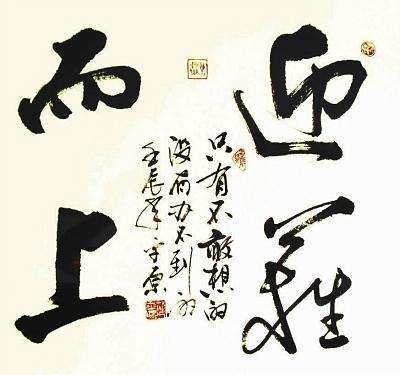 迎難
而上
只有不敢想的
没有办不到的
壬辰年